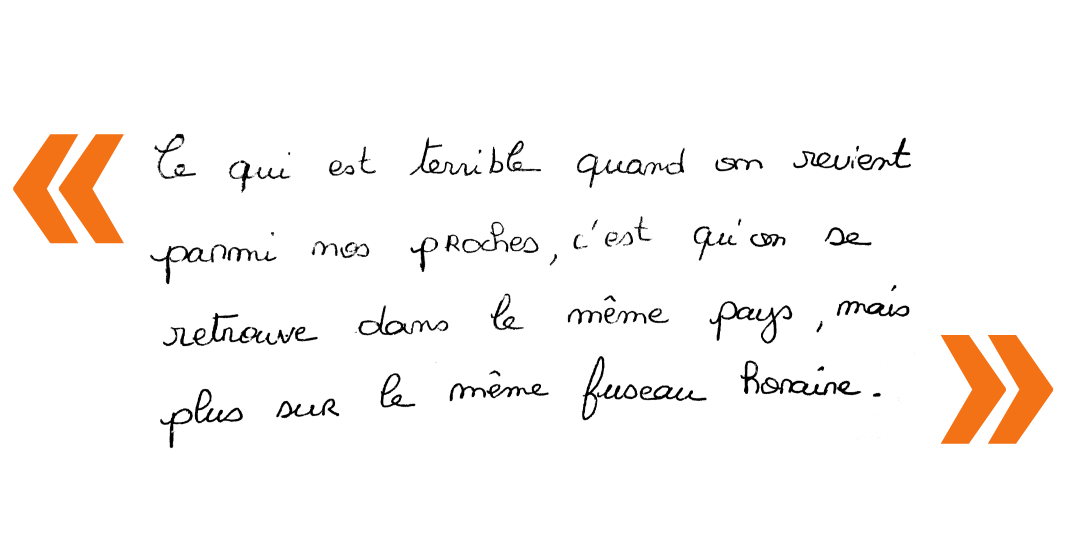 « Ce qui est terrible quand on revient
parmi nos proches, c'est qu'on se
retrouve dans le même pays, mais
plus sur le même fuseau horaire. »